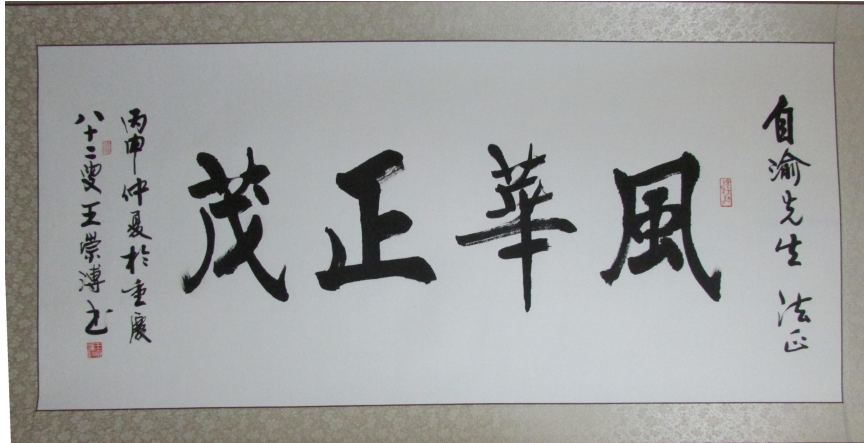 自渝先生 法正
風華正茂
丙申仲夏於重慶
八十二叟王崇溥书